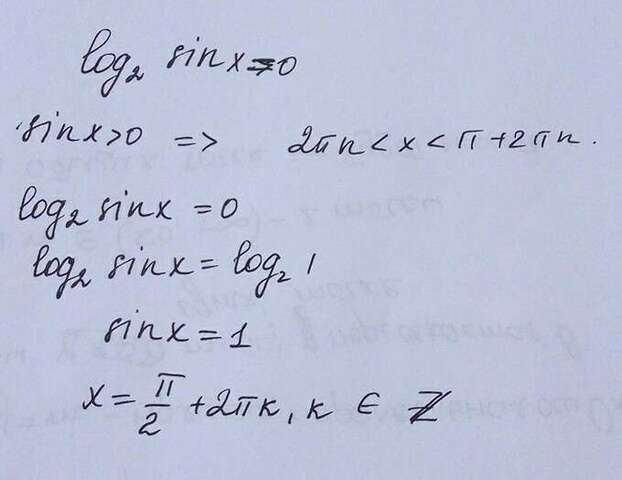 log₂ sinx=0
sinx>0 => 2πn<x<π+2πn.
log₂ sinx = 0
log₂ sinx = log₂ 1
sinx = 1
x = π/2 + 2πk, k ∈ Z